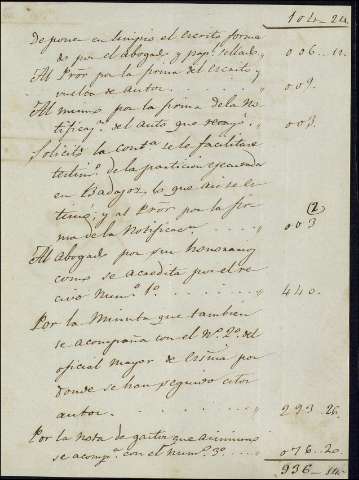 104..24.
de poner en limpio el escrito forma
do por el abogado, y pap.l sellado, 006..12.
Al Pror por la firma del escrito y
vuelta de autos. 009.
Al mismo por la firma de la No
tificaz.n del auto que recayó. 003.
Solicitó la Cond.sa se le facilitase
testim.o de la particion egecutada
en Badajoz, lo que asi se es
timó; y al Pror por la fir
ma de la Notificac.n 003
(2)
Al Abogado por sus honorarios
como se acredita por el re
civo Num.o 1.o 440.
Por la Minuta que tambien
se acompaña con el N.o 2.o del
oficial mayor de Escrivá por
donde se han seguido estos
autos. 293..26.
Por la Nota de gastos que asimismo
se acomp.a con el Num.o 3.o 076..20.
936..14.